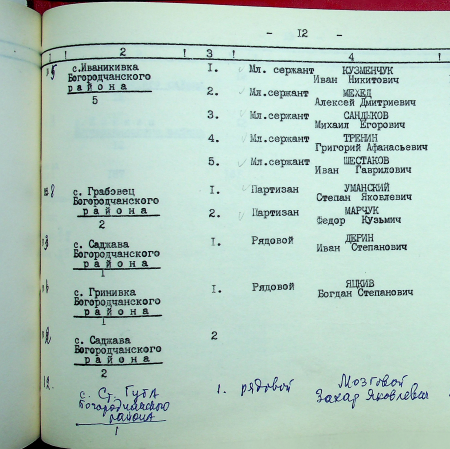 - 12 -
1 ! 2 ! 3 ! 4 !
5 с.Иваникивка 1. Мл. сержант КУЗМЕНЧУК
Богородчанского Иван Никитович
района 2. Мл.сержант МЕХЕД
5 Алексей Дмитриевич
3. Мл.сержант САНДЫКОВ
Михаил Егорович
4. Мл.сержант ТРЕНИН
Григорий Афанасьевич
5. Мл.сержант ШЕСТАКОВ
Иван Гаврилович
8 с. Грабовец 1. Партизан УМАНСКИЙ
Богородчанского Степан Яковлевич
района 2. Партизан МАРЧУК
2 Федор Кузьмич
с. Саджава 1. Рядовой ДЕРИН
Богородчанского Иван Степанович
района
1
с. Гринивка 1. Рядовой ЯЦКИВ
Богородчанского Богдан Степанович
района
1
с. Саджава 2
Богородчанского
района
2
12. с. Ст. Гута 1. рядовой Мозговой
Богородчанского Захар Яковлевич
района
1